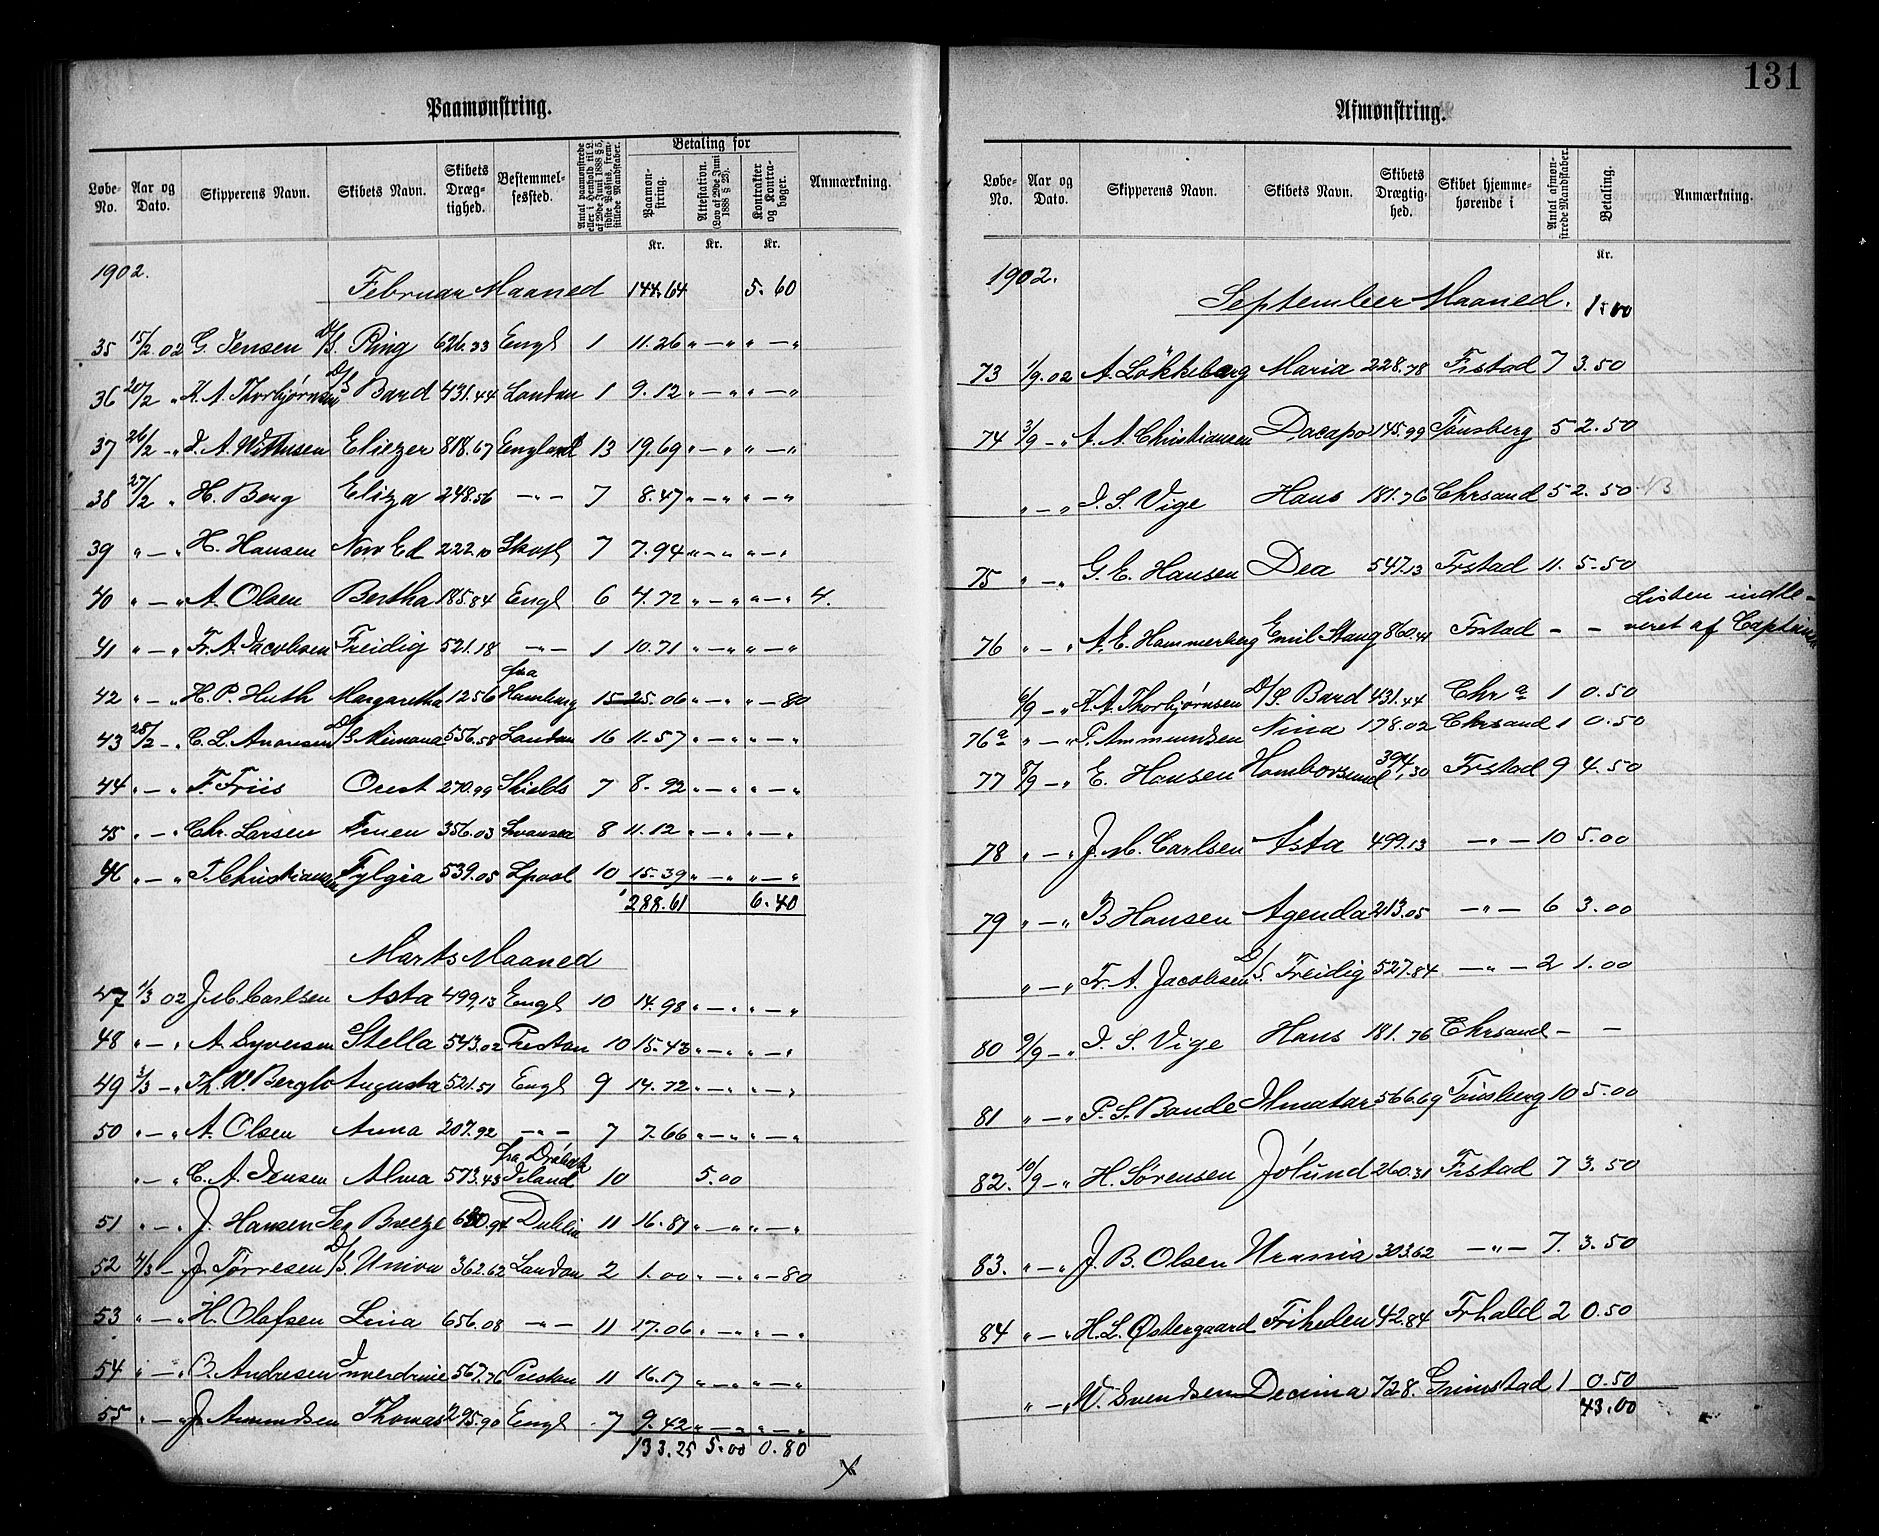 131
Paamønstring.
Løbe-No. Aar og Dato. Skipperens Navn. Skibets Navn. Skibets Dræg-tighed. Bestemmel-sessted. Antal paamønstrede eller i Henhold til L. af 29de Juni 1888 § 5, sidste Passus, frem-stillede Mandskaber. Betaling for Paamøn-string. Attestation. (Lov af 29de Juni 1888 § 25). Kontrakter og Kontra-bøger. Anmærkning.
Kr. Kr. Kr.
1902.
Februar Maaned 144.64 5.60
35 15/2 02 G. Jensen D/S. Ring 626.33 Engl 1 11.26 " — " " — "
36 20/2 " K. A. Thorbjørnsen D/S Bard 431.44 London 1 9.12 " — " " — "
37 26/2 — " J. A. Wittusen Eliezer 818.67 England 13 19.69 " — " " — "
38 27/2 " H. Berg Eliza 248.56 — " — 7 8.47 " — " " — "
39 " — " H. Hansen Nora Ed 222.10 Skotl 7 7.94 " — " " — "
40 " — " A. Olsen Bertha 185.84 Engl 6 4.72 " — " " — " 4.
41 " — " Fr. A. Jacobsen Freidig 521.18 — " — 1 10.71 " — " " — "
42 " — " H. P. Huth Margaretha 1256 fra Hamburg 15 25.06 " — " " — 80
43 28/2 — " C. L. D/S Mimona 556.58 London 16 11.57 " — " " — "
44 " — " F. Friis Oust 270.99 Shields 7 8.92 " — " " — "
45 " — " Chr. Larsen Fruen 356.03 Swansea 8 11.12 " — " " — "
46 " — " T. Christiansen Fylgia 539.05 Lpool 10 15.39 " — " " — "
288.61 6.40
Marts Maaned
47 1/3 02 J. M. Carlsen Asta 499.13 Engl 10 14.98 " — " " — "
48 " — " A. Syversen Stella 543.02 Preston 10 15.43 " — " " — "
49 3/3 — " Th. W. Berglo Augusta 521.51 Engl 9 14.72 " — " " — "
50 " — " A. Olsen Anna 207.92 — " — 7 7.66 " — " " — "
" — " C. A. Jensen Alma 573.43 10 5.00
51 " — " J. Hansen Sea Breeze 680.94 Dublin 11 16.87 " — " " — "
52 4/3 — " J. Tørresen D/S. Union 362.62 London 2 1.00 " — " " — 80
53 " — " H. Olafsen Lina 656.08 — " — 11 17.06 " — " " — "
54 " — " O. Andresen Inverdruie 567.76 Preston 11 16.17 " — " " — "
55 " — " J. Amundsen Thomas 295.90 Engl 7 9.42 " — " " — "
133.25 5.00 0.80
Afmønstring.
Løbe-No. Aar og Dato. Skipperens Navn. Skibets Navn. Skibets Drægtig-hed. Skibet hjemme-hørende i Antal afmøn-strede Mandskaber. Betaling. Anmærkning.
Kr.
1902.
September Maaned. 1.00
73 1/9.02 A. Løkkeberg Maria 228.78 Frstad 7 3.50
74 3/9 — " A. A. Christiansen Dacapo 145.99 Tønsberg 5 2.50
" — " J. S. Vige Hans 181.76 Chrsand 5 2.50
75 " — " G. E. Hansen Dea 547.13 Frstad 11. 5.50
76 " — " A. E. Hammerberg Emil Stang 860.41 Frstad — — Listen indle-veret af Captainen
6/9 — " K. A. Thorbjørnsen D/S. Bard 431.44 Chr a 1 0.50
76a " — " P. Ammundsen Nina 178.02 Chrsand 1 0.50
77 8/9 — " E. Hansen Homborsund 394.30 Frstad 9 4.50
78 " — " J. M. Carlsen Asta 499.13 — " — 10 5.00
79 " — " B Hansen Agenda 213.05 — " — 6 3.00
" — " Fr. A. Jacobsen D/S. Freidig 527.84 — " — 2 1.00
80 9/9 — " J. S. Vige Hans 181.76 Chrsand — —
81 " — " P. S. Bande Ilmatar 566.69 Tønsberg 10 5.00
82. 10/9 — " H. Sørensen Jølund 260.31 Frstad 7 3.50
83. " — " J. B. Olsen Urania 303.62 — " — 7. 3.50
84 " — " H. L. Østergaard Friheden 42.84 Frhald 2 0.50
" — " W. Svendsen Decima 728. Grimstad 1 0.50
43.00